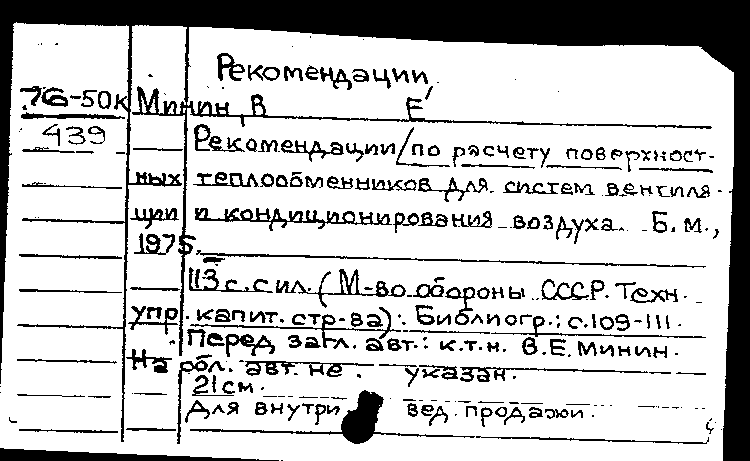 Рекомендации
76-50к Минин, В Е
439 Рекомендации/по расчету поверхност-
ных теплообменников для систем вентиля-
ции и кондиционирования воздуха. Б.м.,
1975.
113 с. с ил. (М-во обороны СССР. Техн.
упр. капит. стр-ва). Библиогр.: с.109-111.
Перед загл. авт.: к.т.н. В.Е.Минин.
На обл. авт. не указан.
21см.
Для внутри вед. продажи.